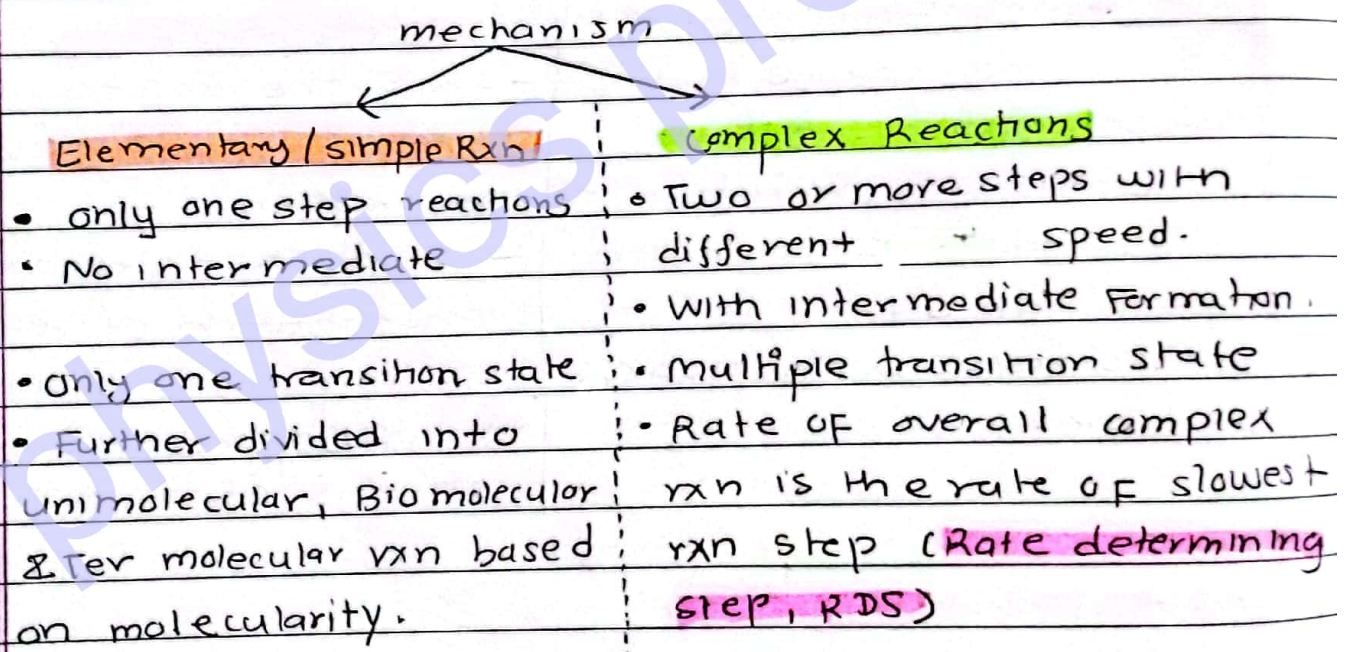 mechanism
Elementary / simple Rxn
• only one step reactions
• No intermediate
• only one transition state
• Further divided into
unimolecular, Biomolecular
& Ter molecular rxn based
on molecularity.
Complex Reactions
• Two or more steps with
different speed.
• With intermediate Formation.
• Multiple transition state
• Rate of overall complex
rxn is the rate of slowest
rxn step (Rate determining
step, RDS)
physics p